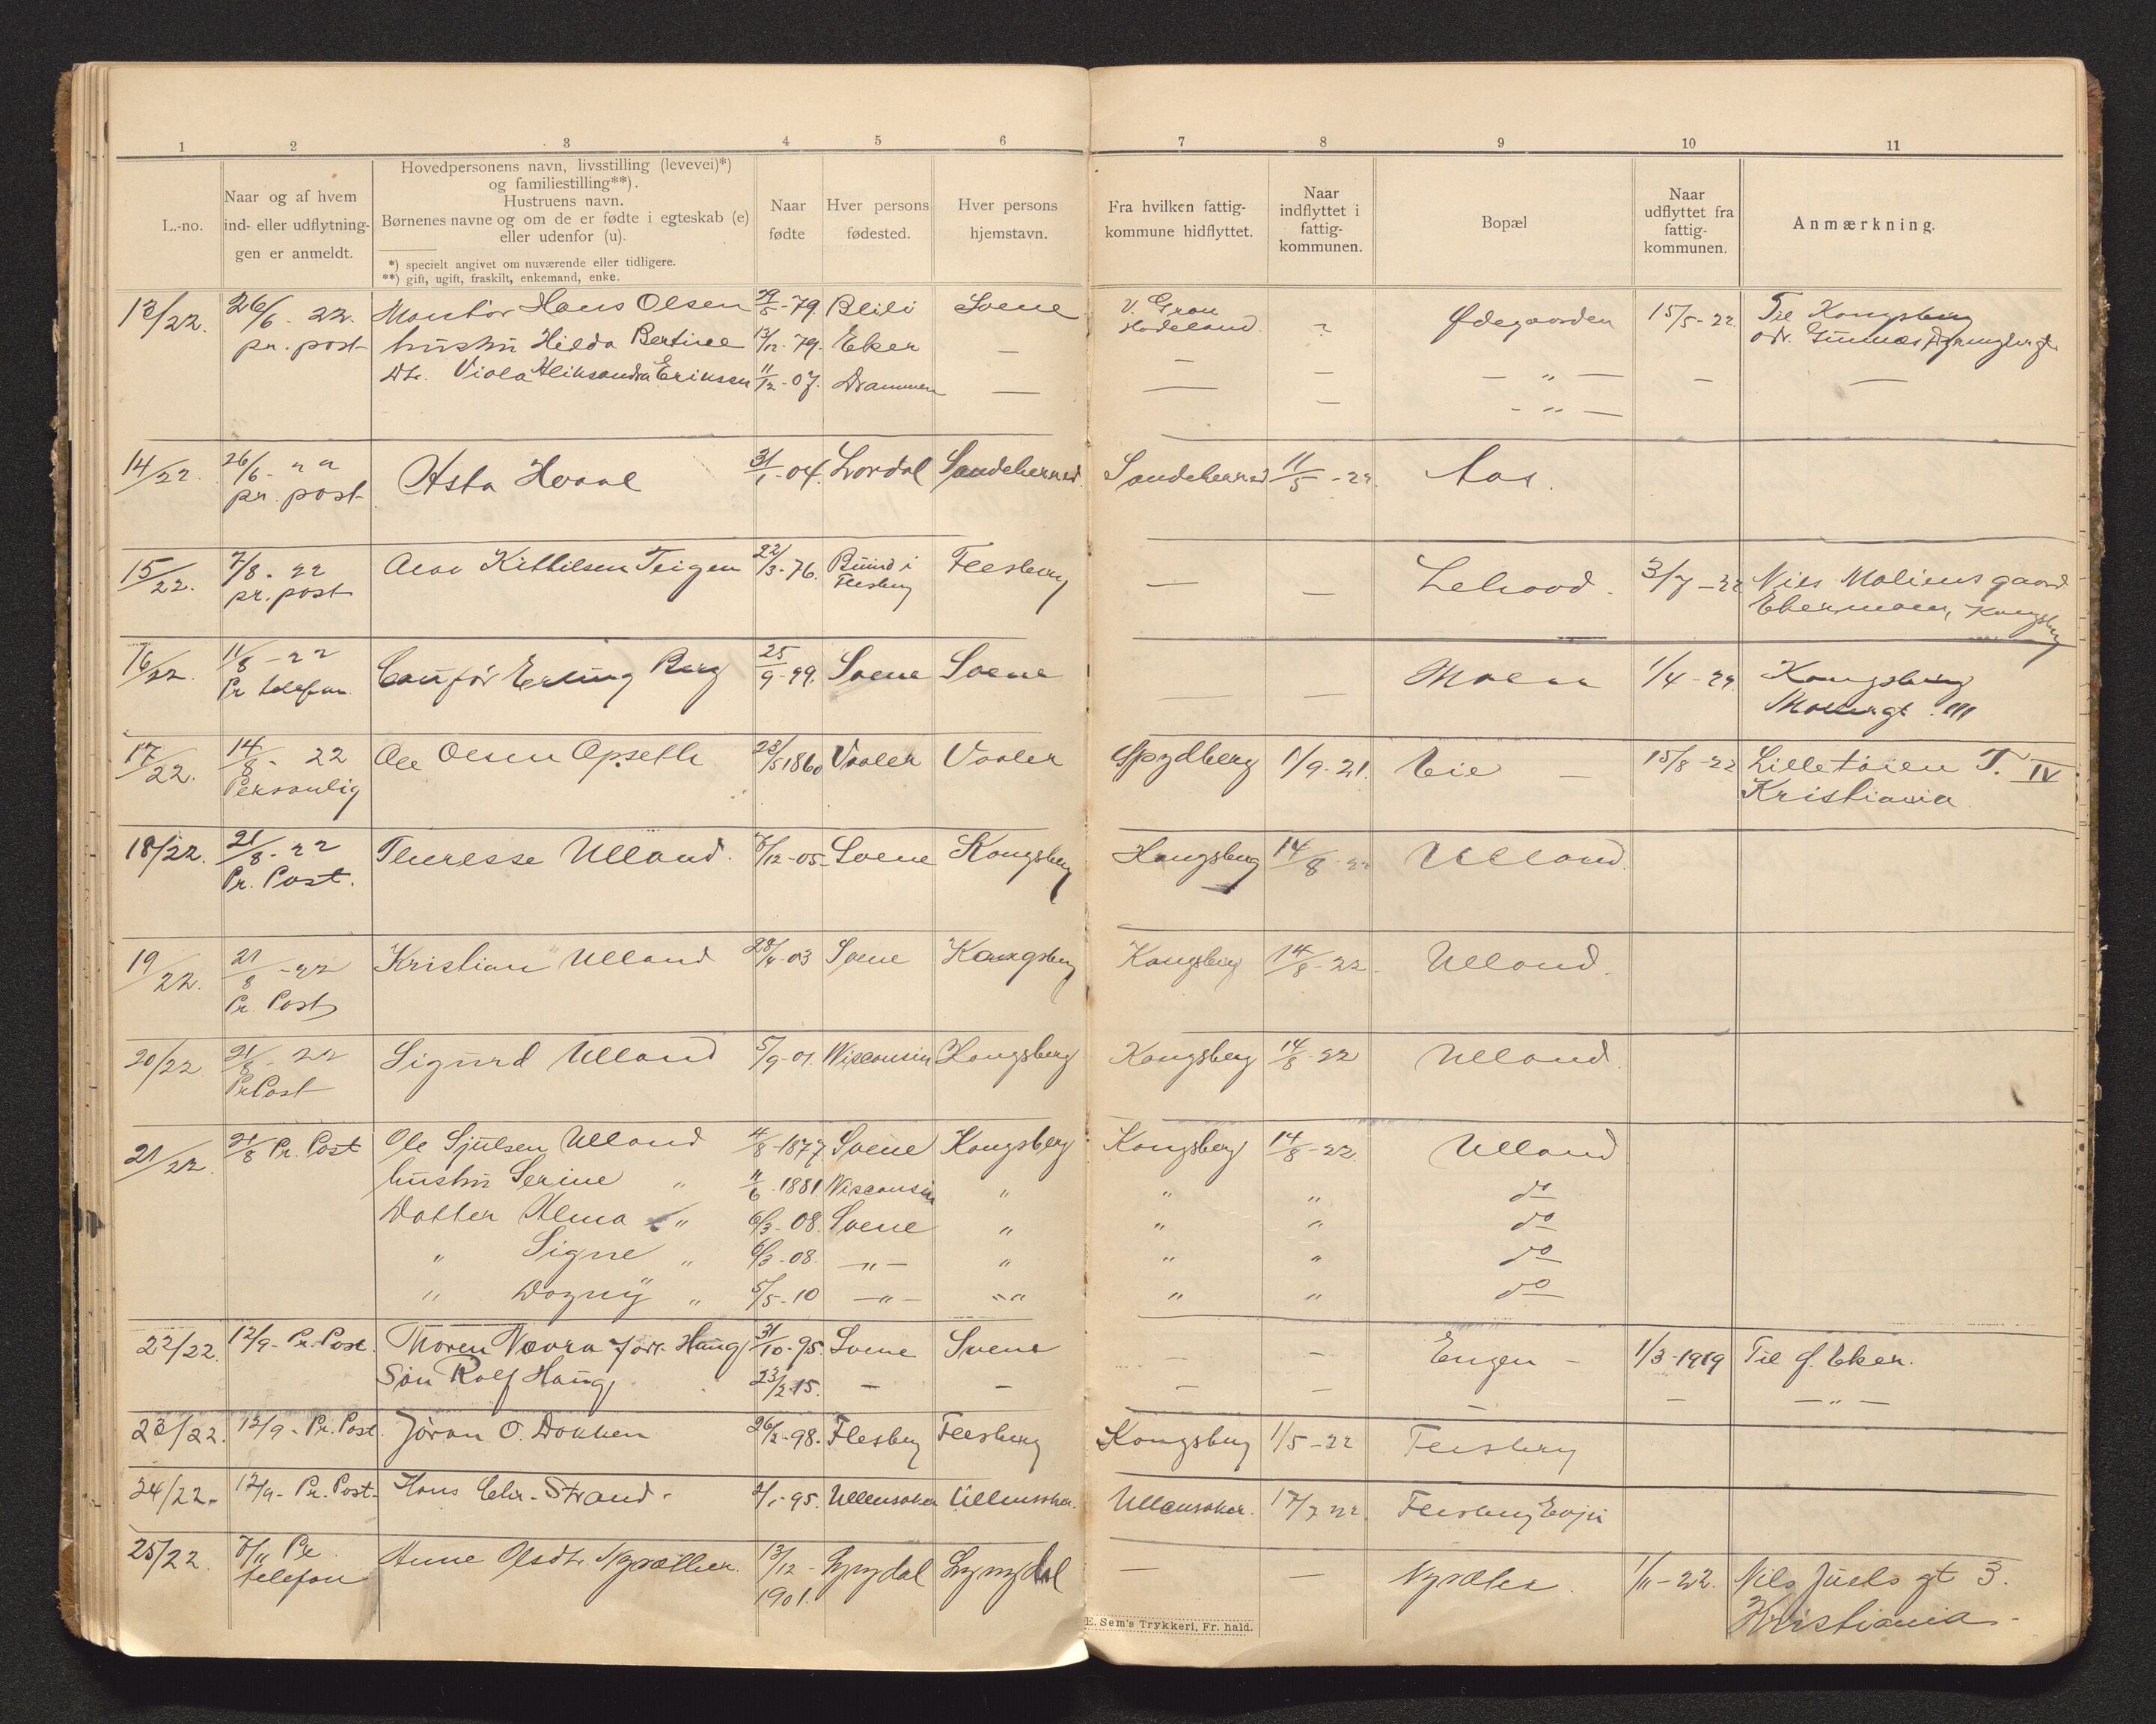 1 2 3 4 5 6 7 8 9 10 11
L.-no.
Naar og af hvem
ind- eller udflytnin-
gen er anmeldt.
Hovedpersonens navn, livsstilling (levevei)*)
og familiestilling**).
Hustruens navn.
Børnenes navne og om de er fødte i egteskab (e)
eller udenfor (u).
*) specielt angivet om nuværende eller tidligere.
**) gift, ugift, fraskilt, enkemand, enke.
Naar
fødte
Hver persons
fødested.
Hver persons
hjemstavn.
Fra hvilken fattig-
kommune hidflyttet.
Naar
indflyttet i
fattig-
kommunen.
Bopæl
Naar
udflyttet fra
fattig-
kommunen.
Anmærkning.
13/22. 26/6 - 22. Montør Hans Olsen 29/5 - 79. Svene V. Gran Ødegaarden 15/5 - 22. Til Kongsberg
pr. post hustru Hilda Bertine 13/12 - 79. Eker — Hadeland. —
Dtr. Viola Aleksandra Eriksen 11/12 - 07. Drammen — — — — " — — —
— - " —
14/22. 26/6 - " " Asta Hvaal 31/1 - 04. Lardal Sandeherred. Sandeherred 11/5 - 22. Aas.
pr. post
15/22. 7/8 - 22 Kittilsen Teigen 22/3 - 76. i Flesberg — — 3/7 - 22
pr. post Flesberg Kongsberg
16/22. 11/8 - 22 Erling Berg 25/9 - 99. Svene Svene — Moen 1/4 - 22. Kongsberg
Pr telefon.
17/22. 14/8 - 22 Ole Olsen Opseth 23/5 1860 Vaaler Vaaler Spydberg 1/9 - 21. Eie — 15/8 - 22 Lilletøien T. IV
Personlig Kristiania.
18/22. 21/8 - 22 Theresse Ulland. /12 - 05 - Svene Kongsberg Kongsberg 14/8 - 22 Ulland.
Pr. Post.
19/22. 21/8 - 22 Kristian Ulland 28/4 - 03 Svene Kongsberg Kongsberg 14/8 - 22. Ulland.
Pr. Post
20/22. 21/8 - 22 Sigurd Ulland 5/9 - 01. Wisconsin Kongsberg Kongsberg 14/8 - 22 Ulland.
Pr Post
21/22. 21/8 Pr. Post Ole Sjulsen Ulland 4/8 - 1877. Svene Kongsberg Kongsberg 14/8 - 22. Ulland
hustru Serine " 11/6 - 1881. Wisconsin " " " do
Datter Alma " 6/3 - 08. Svene " " " do
" Signe " 6/3 - 08. — " — " " " do
" Dagny " 5/5 - 10 — " — " " " " do
22/22. 12/9 - Pr. Post. Thoren Vaara Haug 31/10 - 95. Svene Svene — — Engen — 1/3 - 1919 Til Ø. Eker.
Søn Rolf Haug. 23/2 15. — — — — — — — " —
23/22. 12/9 - Pr. Post. Jøran O. Dokken 26/2 - 98. Flesberg Flesberg Kongsberg 1/5 - 22 Flesberg
24/22. 12/9 - Pr. Post - Hans Chr. Strand. /1 - 95. Ullensaker Ullensaker. Ullensaker. 17/7 22. Flesberg
25/22. /11 Pr. Anne Olsdtr. 13/12 - Lyngdal Lyngdal — — 1/11 - 22. Nils Juels gt 3.
telefon 1901. Kristiania.
E. Sem's Trykkeri, Fr. hald.